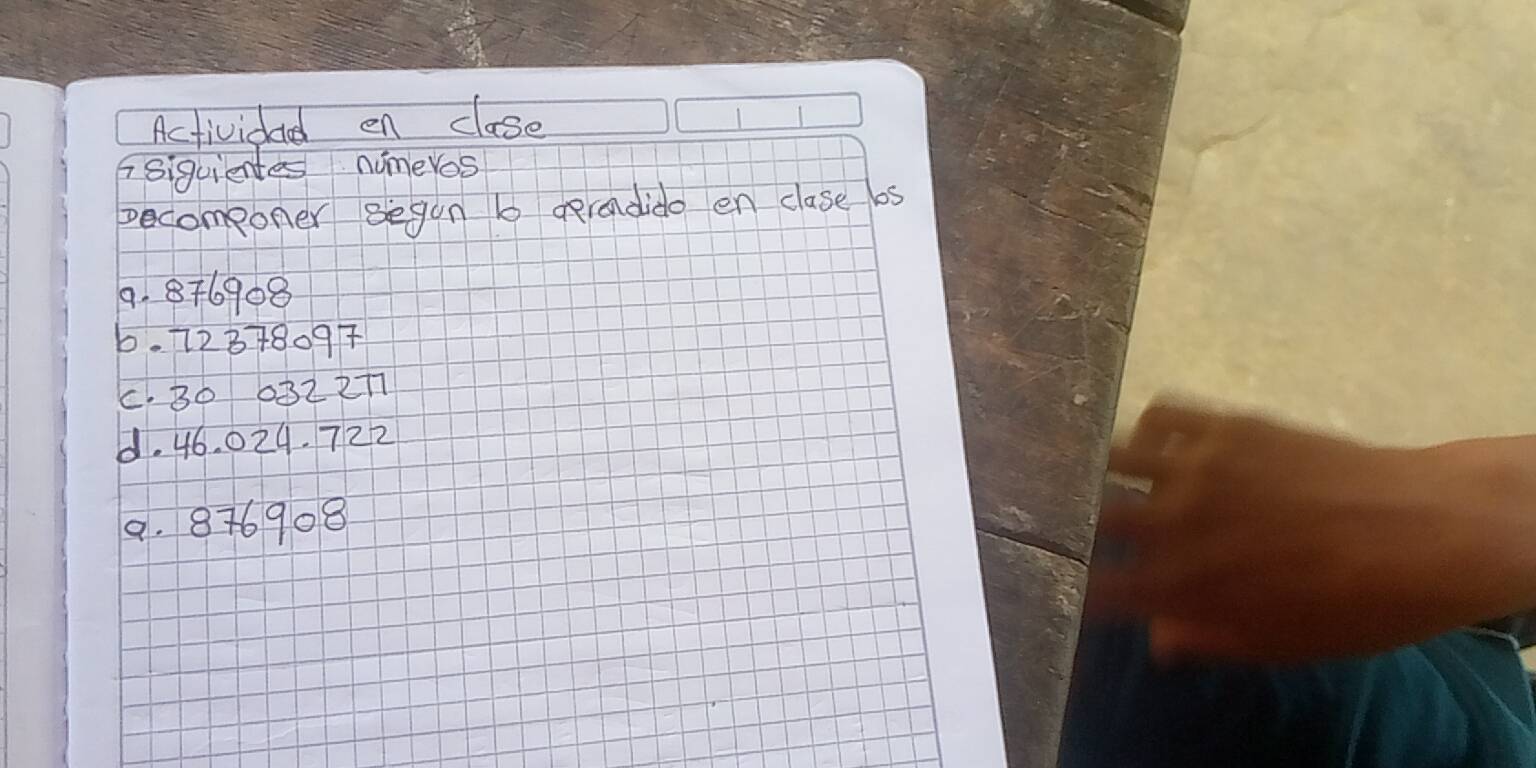 Actividad en clase
- siguientes números
Decomponer según lo aprendido en clase los
a. 876908
b. 72378097
c. 30 032 277
d. 46.024.722
a. 876908